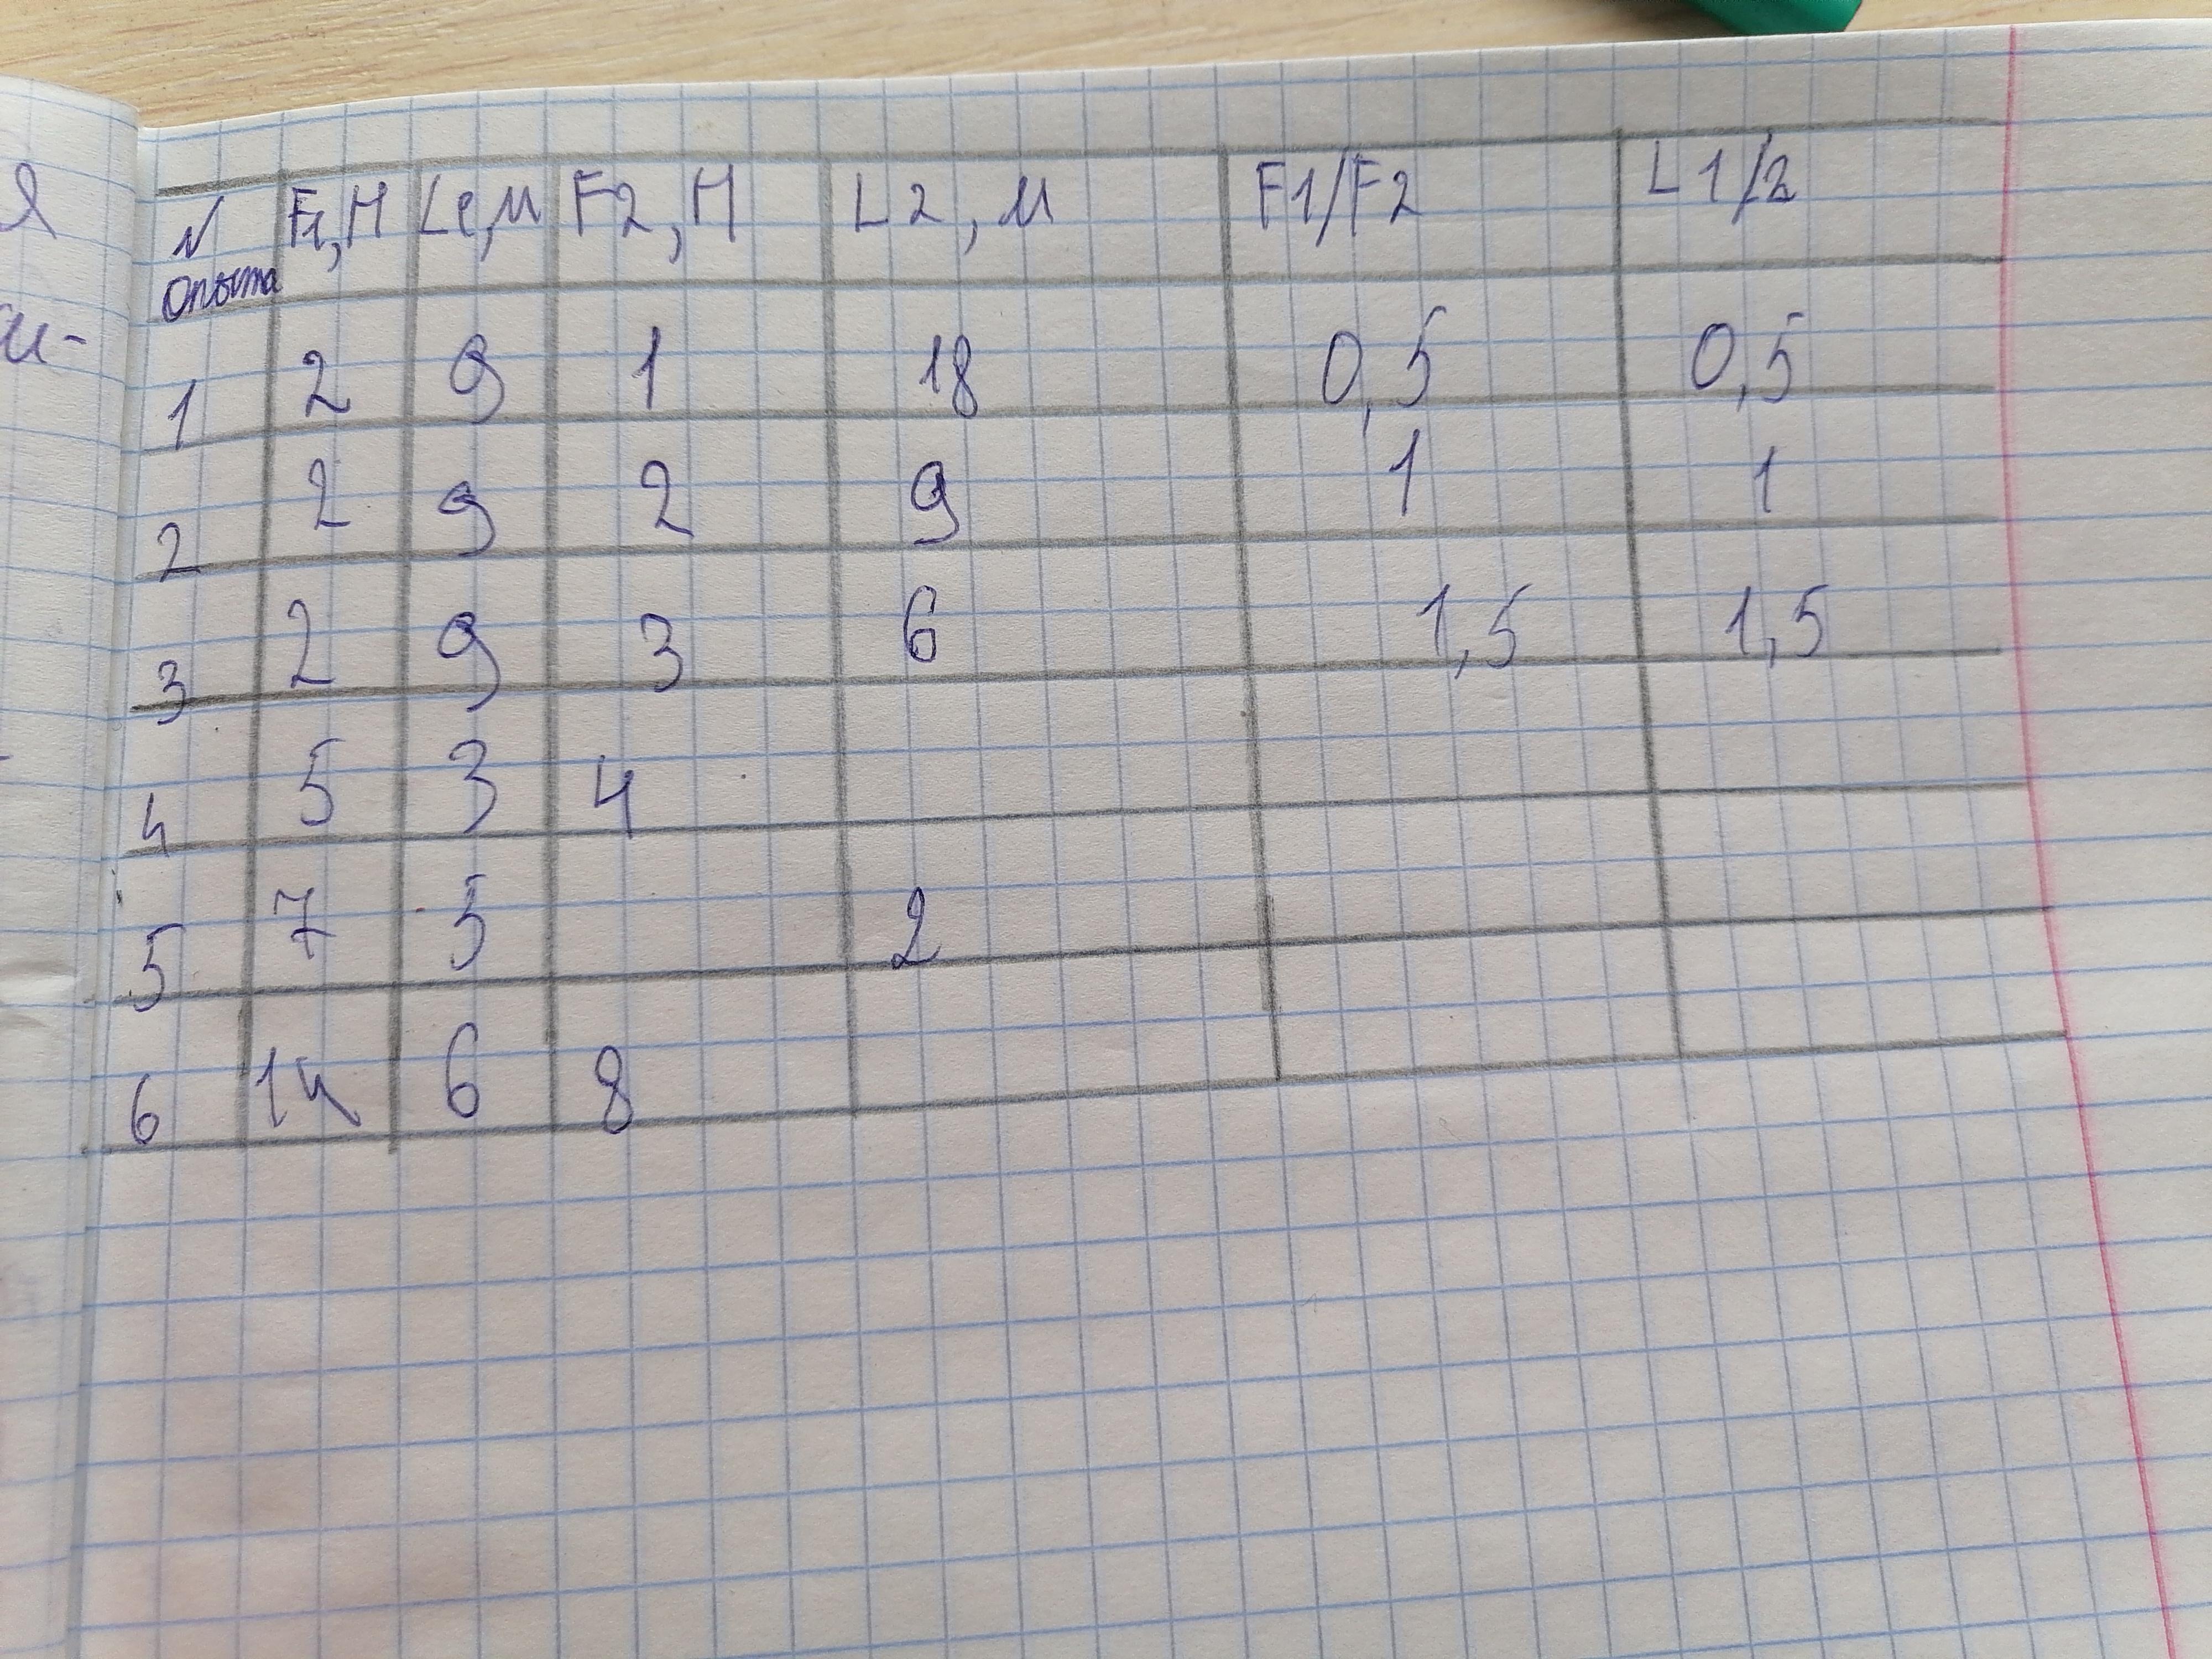 я
и-
№ опыта F1,Н L1,м F2,Н L2,м F1/F2 L1/2
1 2 9 1 18 0,5 0,5
2 2 9 2 9 1 1
3 2 9 3 6 1,5 1,5
4 5 3 4
5 7 5 2
6 14 6 8